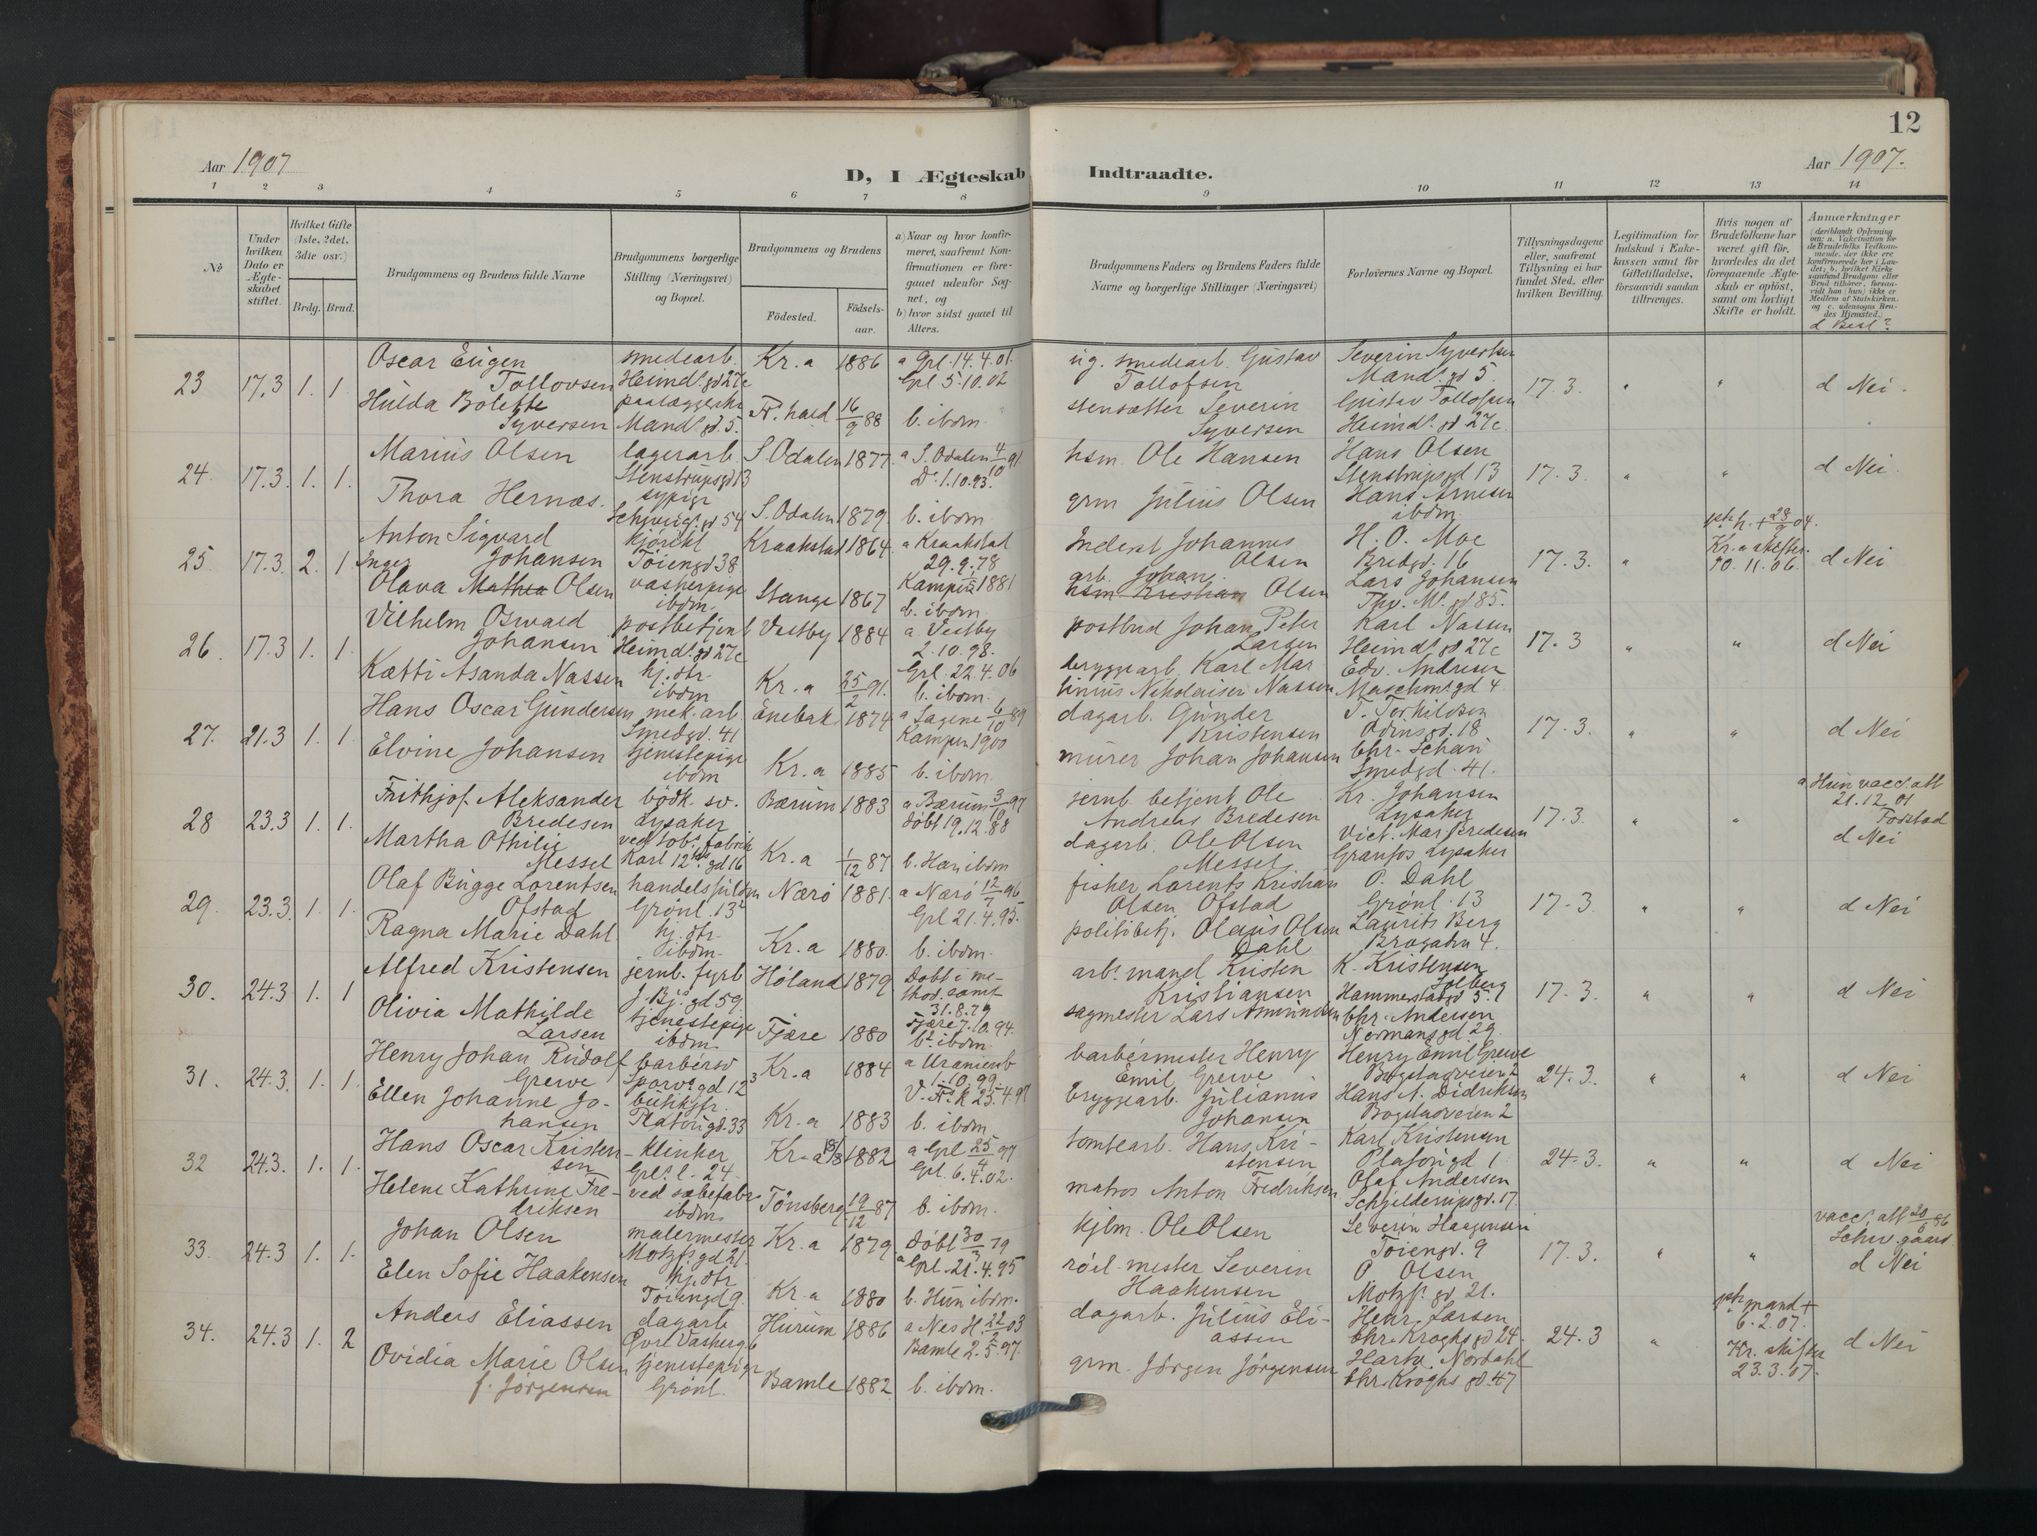 12
Aar 1907
D, I Ægteskab Indtraadte.
Aar 1907.
1 2 3 4 5 6 7 8 9 10 11 12 13 14
№
Under hvilken Dato er Ægteskabet stiftet.
Hvilket Gifte (1ste, 2det, 3die osv.)
Brdg. Brud.
Brudgommens og Brudens fulde Navne
Brudgommens borgerlige Stilling (Næringsvei) og Bopæl.
Brudgommens og Brudens
Fødested.
Fødselsaar.
a) Naar og hvor konfirmeret, saafremt Konfirmationen er foregaaet udenfor Sognet, og
b) hvor sidst gaaet til Alters.
Brudgommens Faders og Brudens Faders fulde Navne og borgerlige Stillinger (Næringsvei)
Forlovernes Navne og Bopæl.
Tillysningsdagene eller, saafremt Tillysning ei har fundet Sted, efter hvilken Bevilling.
Legitimation for Indskud i Enkekassen samt for Giftetilladelse, forsaavidt saadan tiltrænges.
Hvis nogen af Brudefolkene har været gift før, hvorledes da det foregaaende Ægteskab er opløst, samt om lovligt Skifte er holdt.
Anmærkninger (deriblandt Oplysning om: a. Vaccination for de Brudefolks Vedkommende, der ikke ere konfirmerede her i Landet; b. hvilket Kirkesamfund Brudgom eller Brud tilhører, forsaavidt han (hun) ikke er Medlem af Statskirken, og c. udensogns Brudes Hjemsted.)
d Besl?
23 17.3 1. 1 Oscar Eugen Tollovsen smedearb. Heimd.s gd 27c Kr.a 1886 a Grl. 14.4.01. Grl 5.10.02 ug. smedearb. Gustav Tollofsen Severin Syversen Mand.s gd 5. 17.3 " " d Nei.
Hulda Bolette Syversen Mand.s gd. 5. Fr. hald 16/9 88 b. ibdm. stensætter Severin Syversen Gustav Tollofsen Heimd.s gd 27c
24. 17.3. 1. 1 Marius Olsen lagerarb. Stenstrupsgd 13 S. Odalen 1877. a S. Odalen 4/10 91 D.o 1.10.93. hsm. Ole Hansen Hans Olsen Stenstrupsgd 13 17.3. " " d Nei.
Thora Hernæs. sypige Schweig.s gd 54 S. Odalen 1879 b. ibdm grm Julius Olsen Hans Arnesen ibdm.
25 17.3. 2. 1 Anton Sigvard Johansen kjørekl Tøiengd 38 Kraakstad 1864. a Kraakstad 29.9.78 Inderst Johannes Olsen H. O. Moe Bredgd. 16 17.3. " Kr.a skifter 10.11.06. d Nei
Inger Olava Mathea Olsen vaskerpige ibdm. Stange 1867 Kampen 1881 b. ibdm. arb. Johan hsm Kristian Olsen Lars Johansen Thv. M.s gd 85.
26. 17.3 1. 1. Vilhelm Oswald Johansen postbetjent Heimd.s gd 27c Vestby 1884 a Vestby 2.10.98. postbud Johan Peter Larsen Karl Nassen Heimd.s gd 27c 17.3 " " d Nei
Kætti Asanda Nassen hj. dtr. ibdm Kr.a 25/2 91. Grl. 22.4.06 b. ibdm. bryggearb. Karl Martinius Nikolaisen Nassen Edv. Andresen
27. 21.3 1. 1. Hans Oscar Gundersen mek. arb. Smedgd. 41 Enebak 1874 a Sagene 6/10 89 Kampen 1900 dagarb. Gunder Kristensen T. Torkildsen Odinsgd. 18 17.3. " " d Nei
Elvine Johansen tjenestepige ibdm Kr.a 1885 b. ibdm. murer Johan Johansen Chr. Schau Smedgd. 41.
28 23.3 1. 1. Frithjof Aleksander Bredesen bødk. sv. Lysaker Bærum 1883 a Bærum 3/10 97 døbt 19.12.88 jernb. betjent Ole Andreas Bredesen Kr. Johansen Lysaker 17.3. " " a Hun vacc. att 21.12.01 d Nei
Martha Othilie Messel ved tob. fabrik Karl 12tes gd 16 Kr.a 1/12 87 b. Han ibdm dagarb. Ole Olsen Messel Vict. Mar. Bredesen Granfos Lysaker
29. 23.3. 1. 1. Olaf Bugge Lorentsen Ofstad Grønl. 13 Nærø 1881. a Nærø 12/7 96 Grl 21.4.95. fisker Lorents Kristian Olsen Ofstad O. Dahl Grønl. 13 17.3 " " d Nei
Ragna Marie Dahl. hj. dtr. ibdm. Kr.a 1880. b. ibdm. politibetj. Olaus Olsen Dahl Laurits Berg Brogadn 4.
30. 24.3 1. 1 Alfred Kristensen jernb. fyrb J. Bj.s gd 59 Høland 1879 Døbt i method. samf 31.8.79 arb.mand Kristen Kristiansen K. Kristensen Solberg Hammerstadgd 5. 17.3. " " d Nei
Olivia Mathilde Larsen tjenestepige ibdm. Fjære 1880 Fjære 7.10.94. b. ibdm. sagmester Lars Amundsen Chr. Andersen Normansgd 29.
31. 24.3. 1. 1. Henry Johan Rudolf Grewe barbérsv Sporv.s gd 12 Kr.a 1884 a Uranienb 1.10.99. barbérmester Henry Emil Grewe Henry Emil Grewe Bogstadveien 2 24.3. " " d Nei
Ellen Johanne Johansen butikjfr. Kr.a 1883 b. ibdm. bryggearb. Julianus Johansen Hans A. Didriksen Bogstadveien 2
32 24.3. 1. 1. Hans Oscar Kristensen klinker Grl.s l. 24. Kr.a 1882 a Grl 25/4 97 Grl. 6.4.02. tomtearb. Hans Kristensen Karl Kristensen 24.3. " " d Nei
Helene Kathrine Fredriksen ved sæbefabr ibdm. Tønsberg 19/12 87 b. ibdm. matros Anton Fredriksen Olaf Andersen Schjelderupsgd. 17.
33. 24.3 1. 1. Johan Olsen malermester Motzfs gd 21. Kr.a 1879 Døbt 30/3 79 a Grl. 21.4.95 kjbm. Ole Olsen Severin Haagensen Tøiengd. 9 17.3. " " vacc. att 20/6 86 d Nei
Elen Sofie Haakensen hj. dtr Tøiengd 9. Kr.a 1880 b. Hun ibdm. Severin Haakensen O. Olsen Motzfs gd 21.
34. 24.3 1. 2 Anders Eliassen dagarb Hurum 1886 a Nes H. 22/2 03 dagarb. Julius Eliassen Henr. Larsen Chr. Kroghs gd 24. 24.3 " mand + 6.2.07. Kr. skifter 23.3.07. d Nei
Ovidia Marie Olsen f. Jørgensen tjenestepige Grønl. Bamle 1882 Bamle 2.5.97. b. ibdm. grm. Jørgen Jørgensen Hartv. Nordahl Chr. Kroghs gd. 47